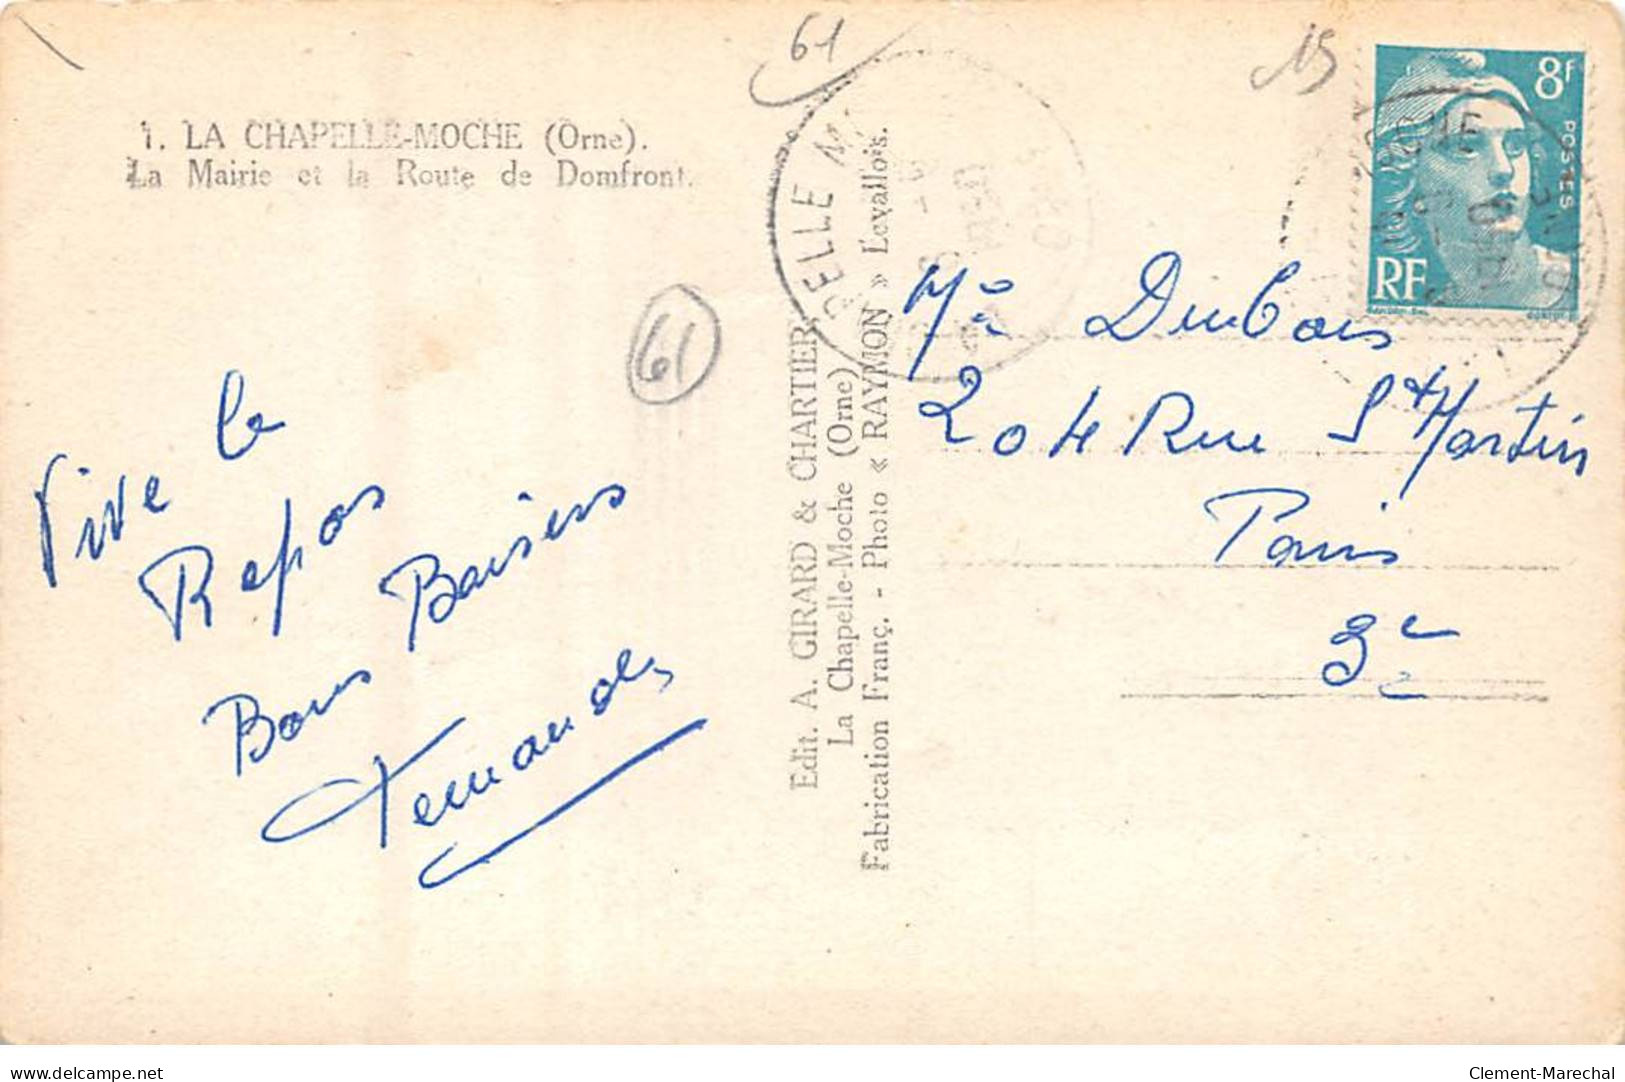 61
15
1. LA CHAPELLE-MOCHE (Orne).
La Mairie et la Route de Domfront.
8F
POSTES
RF
PELLE M
61
Vive le
Repos
Bons Baisers
Fernande
Edit. A. GIRARD & CHARTIER
La Chapelle-Moche (Orne)
Fabrication Franç. - Photo « RAYMON » Levallois.
Dubois
204 Rue St Martin
Paris
3e
delcampe.net
Clement-Marechal